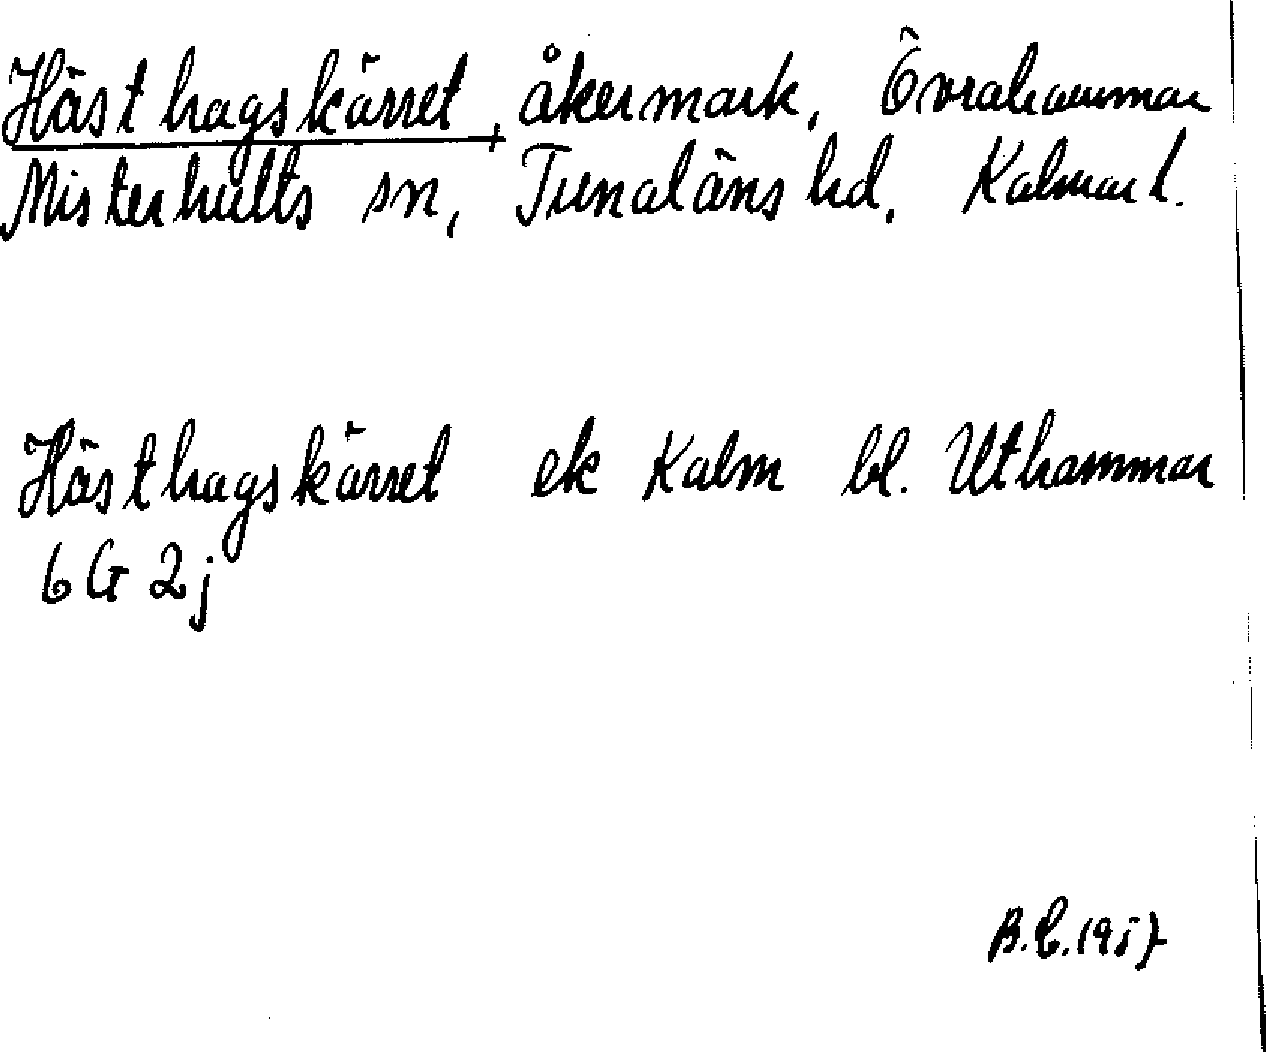 Hästhagskärret, åkermark, Övrahammar
Misterhults sn, Tunaläns hd, Kalmar l.
Hästhagskärret ek Kalm bl. Uthammar
6G 2j
B.E. 1957